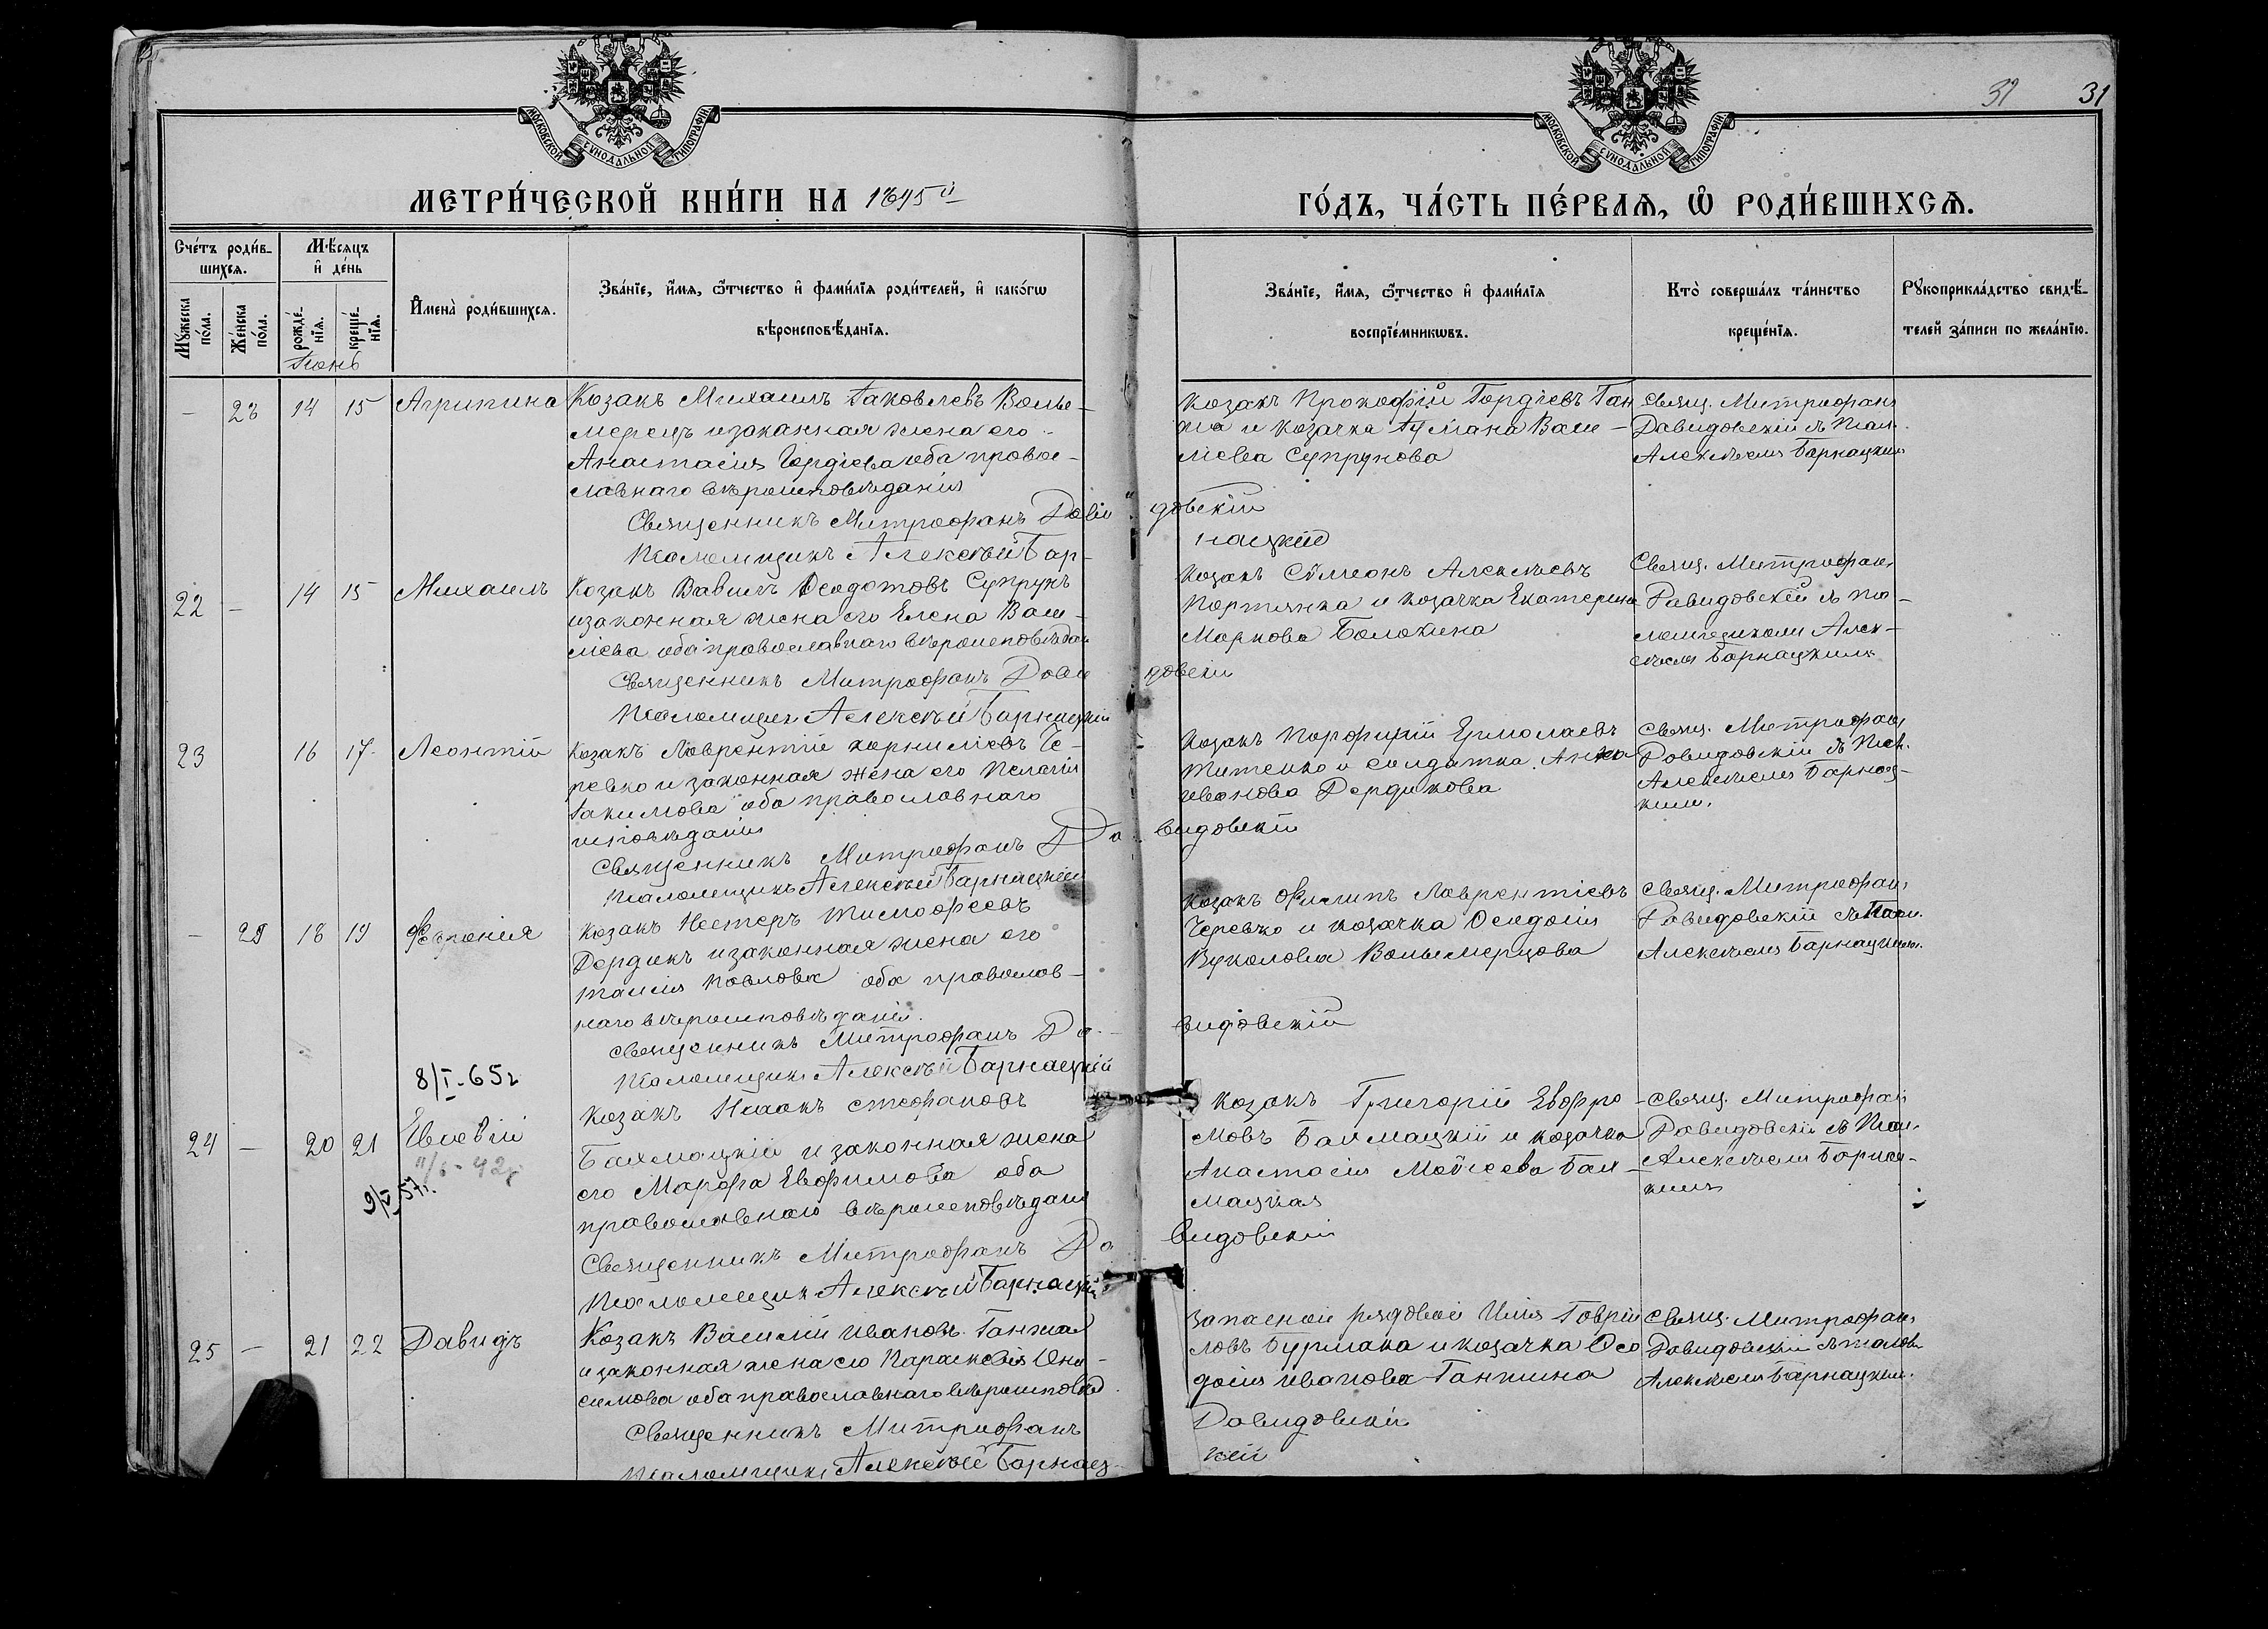 31 31
МОСКОВСКОЙ СѴНОДАЛЬНОЙ ТИПОГРАФІИ
МОСКОВСКОЙ СѴНОДАЛЬНОЙ ТИПОГРАФІИ
МЕТРИ́ЧЕСКОЙ КНИ́ГИ НА 1895й
ГО́ДЪ, ЧА́СТЬ ПЕ́РВАЯ, Ѡ РОДИ́ВШИХСЯ.
Сче́тъ роди́в-
шихся.
Мꙋ́жеска по́ла.
Же́нска по́ла.
Мѣ́сяцъ
и де́нь
рожде́-нїя.
креще́-нїя.
Имена̀ роди́вшихся.
Зва́нїе, и́мя, ѻ́тчество и фами́лїя роди́телей, и како́гѡ
вѣроисповѣ́данїя.
Зва́нїе, и́мя, ѻ́тчество и фами́лїя
воспрїе́мникѡвъ.
Кто̀ соверша́лъ та́инство
креще́нїя.
Рꙋкоприкла́дство свидѣ́-
телей за́писи по жела́нїю.
Іюнь
– 23 14 15 Агрипина
Козакъ Михаилъ Іаковлевъ Волье-
мерецъ и законная жена его
Анастасія Гордіева оба право-
славнаго вѣроисповѣданія
Священникъ Митрофанъ Давидовскій
Псаломщикъ Алексѣй Барнацкій
Козакъ Прокофій Гордіевъ Ган
жа и козачка Васи-
лієва Супрунова
Свящ. Митрофанъ
Давидовскій съ Псал.
Алексѣемъ Барнацкимъ
22 – 14 15 Михаилъ
Козакъ Вавилъ Ѳеодотовъ Супрунъ
и законная жена его Елена Васи-
лієва оба православнаго вѣроисповѣдан
Священникъ Митрофанъ Давидовскій
Псаломщикъ Алексѣй Барнацкій
Козакъ Сѷмеонъ Алексѣевъ
Портянка и козачка Екатерина
Маркова Болокина
Свящ. Митрофан.
Давидовскій съ пса-
ломщикомъ Алек-
сѣемъ Барнацкимъ
23 16 17 Леонтій
Козакъ Лаврентій Корниліевъ Че-
ревко и законная жена его Пелагія
Іакимова оба православнаго
исповѣданія
Священникъ Митрофанъ Давидовскій
Псаломщикъ Алексѣй Барнацкій
Козакъ Порфирій Ермолаевъ
Титенко и солдатка Анна
Иванова Дердикова
Свящ. Митрофанъ
Давидовскій съ Псал.
Алексѣемъ Барнац-
кимъ.
– 25 18 19 Феѵронія
Козакъ Нестеръ Тимофеевъ
Дердикъ и законная жена его
Таисія Павлова оба православ-
наго вѣроисповѣданія.
Священникъ Митрофанъ Давидовскій
Псаломщикъ Алексѣй Барнацкій
Козакъ Филипъ Лаврентіевъ
Черевко и козачка Ѳеодосія
Вуколова Вольемерцова
Свящ. Митрофан.
Давидовскій съ Псал.
Алексѣемъ Барнацким.
8/I-65г
24 – 20 21 Евсевій
9/V 57г.
Козакъ Исаакъ Стефановъ
Бахмацкій и законная жена
его Марфа Евфимова оба
православнаго вѣроисповѣдані
Священникъ Митрофанъ Давидовскій
Псаломщикъ Алексѣй Барнацкій
Козакъ Григорій Евфи-
мовъ Бахмацкій и козачка
Анастасія Моѵсеева Бах-
мацкая
Свящ. Митрофан
Давидовскій съ Псал.
Алексѣемъ Барнац-
кимъ
25 – 21 22 Давидъ
Козакъ Василій Ивановъ Ганжа
и законная жена его Параскевія Они-
симова оба православнаго вѣроисповѣд
Священникъ Митрофанъ Давидовскій
Псаломщикъ Алексѣй Барнацкій
Запасной рядовой Илія Гаврии
ловъ Бурмака и козачка Ѳео
досія Иванова Ганжина
Свящ. Митрофан.
Давидовскій съ псалом
Алексѣемъ Барнацким.